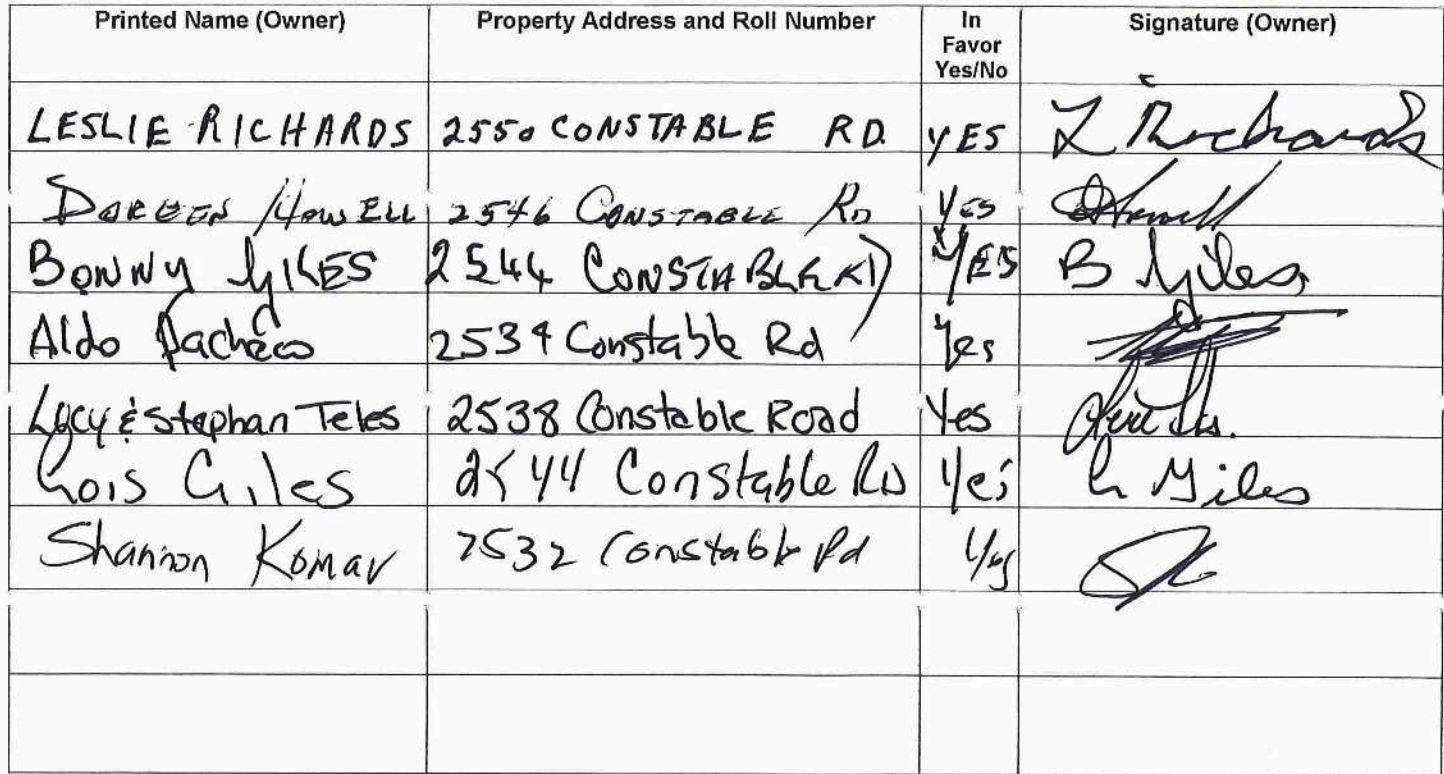 Printed Name (Owner) Property Address and Roll Number In Favor Yes/No Signature (Owner)
LESLIE RICHARDS 2550 CONSTABLE RD. YES L Richards
DOREEN HOWELL 2546 CONSTABLE RD YES DHowell
BONNY GILES 2544 CONSTABLE RD YES B Giles
Aldo Pacheco 2534 Constable Rd Yes
Lucy & Stephan Teles 2538 Constable Road Yes
Lois Giles 2544 Constable RD Yes L Giles
Shannon Komar 2532 Constable Rd Yes